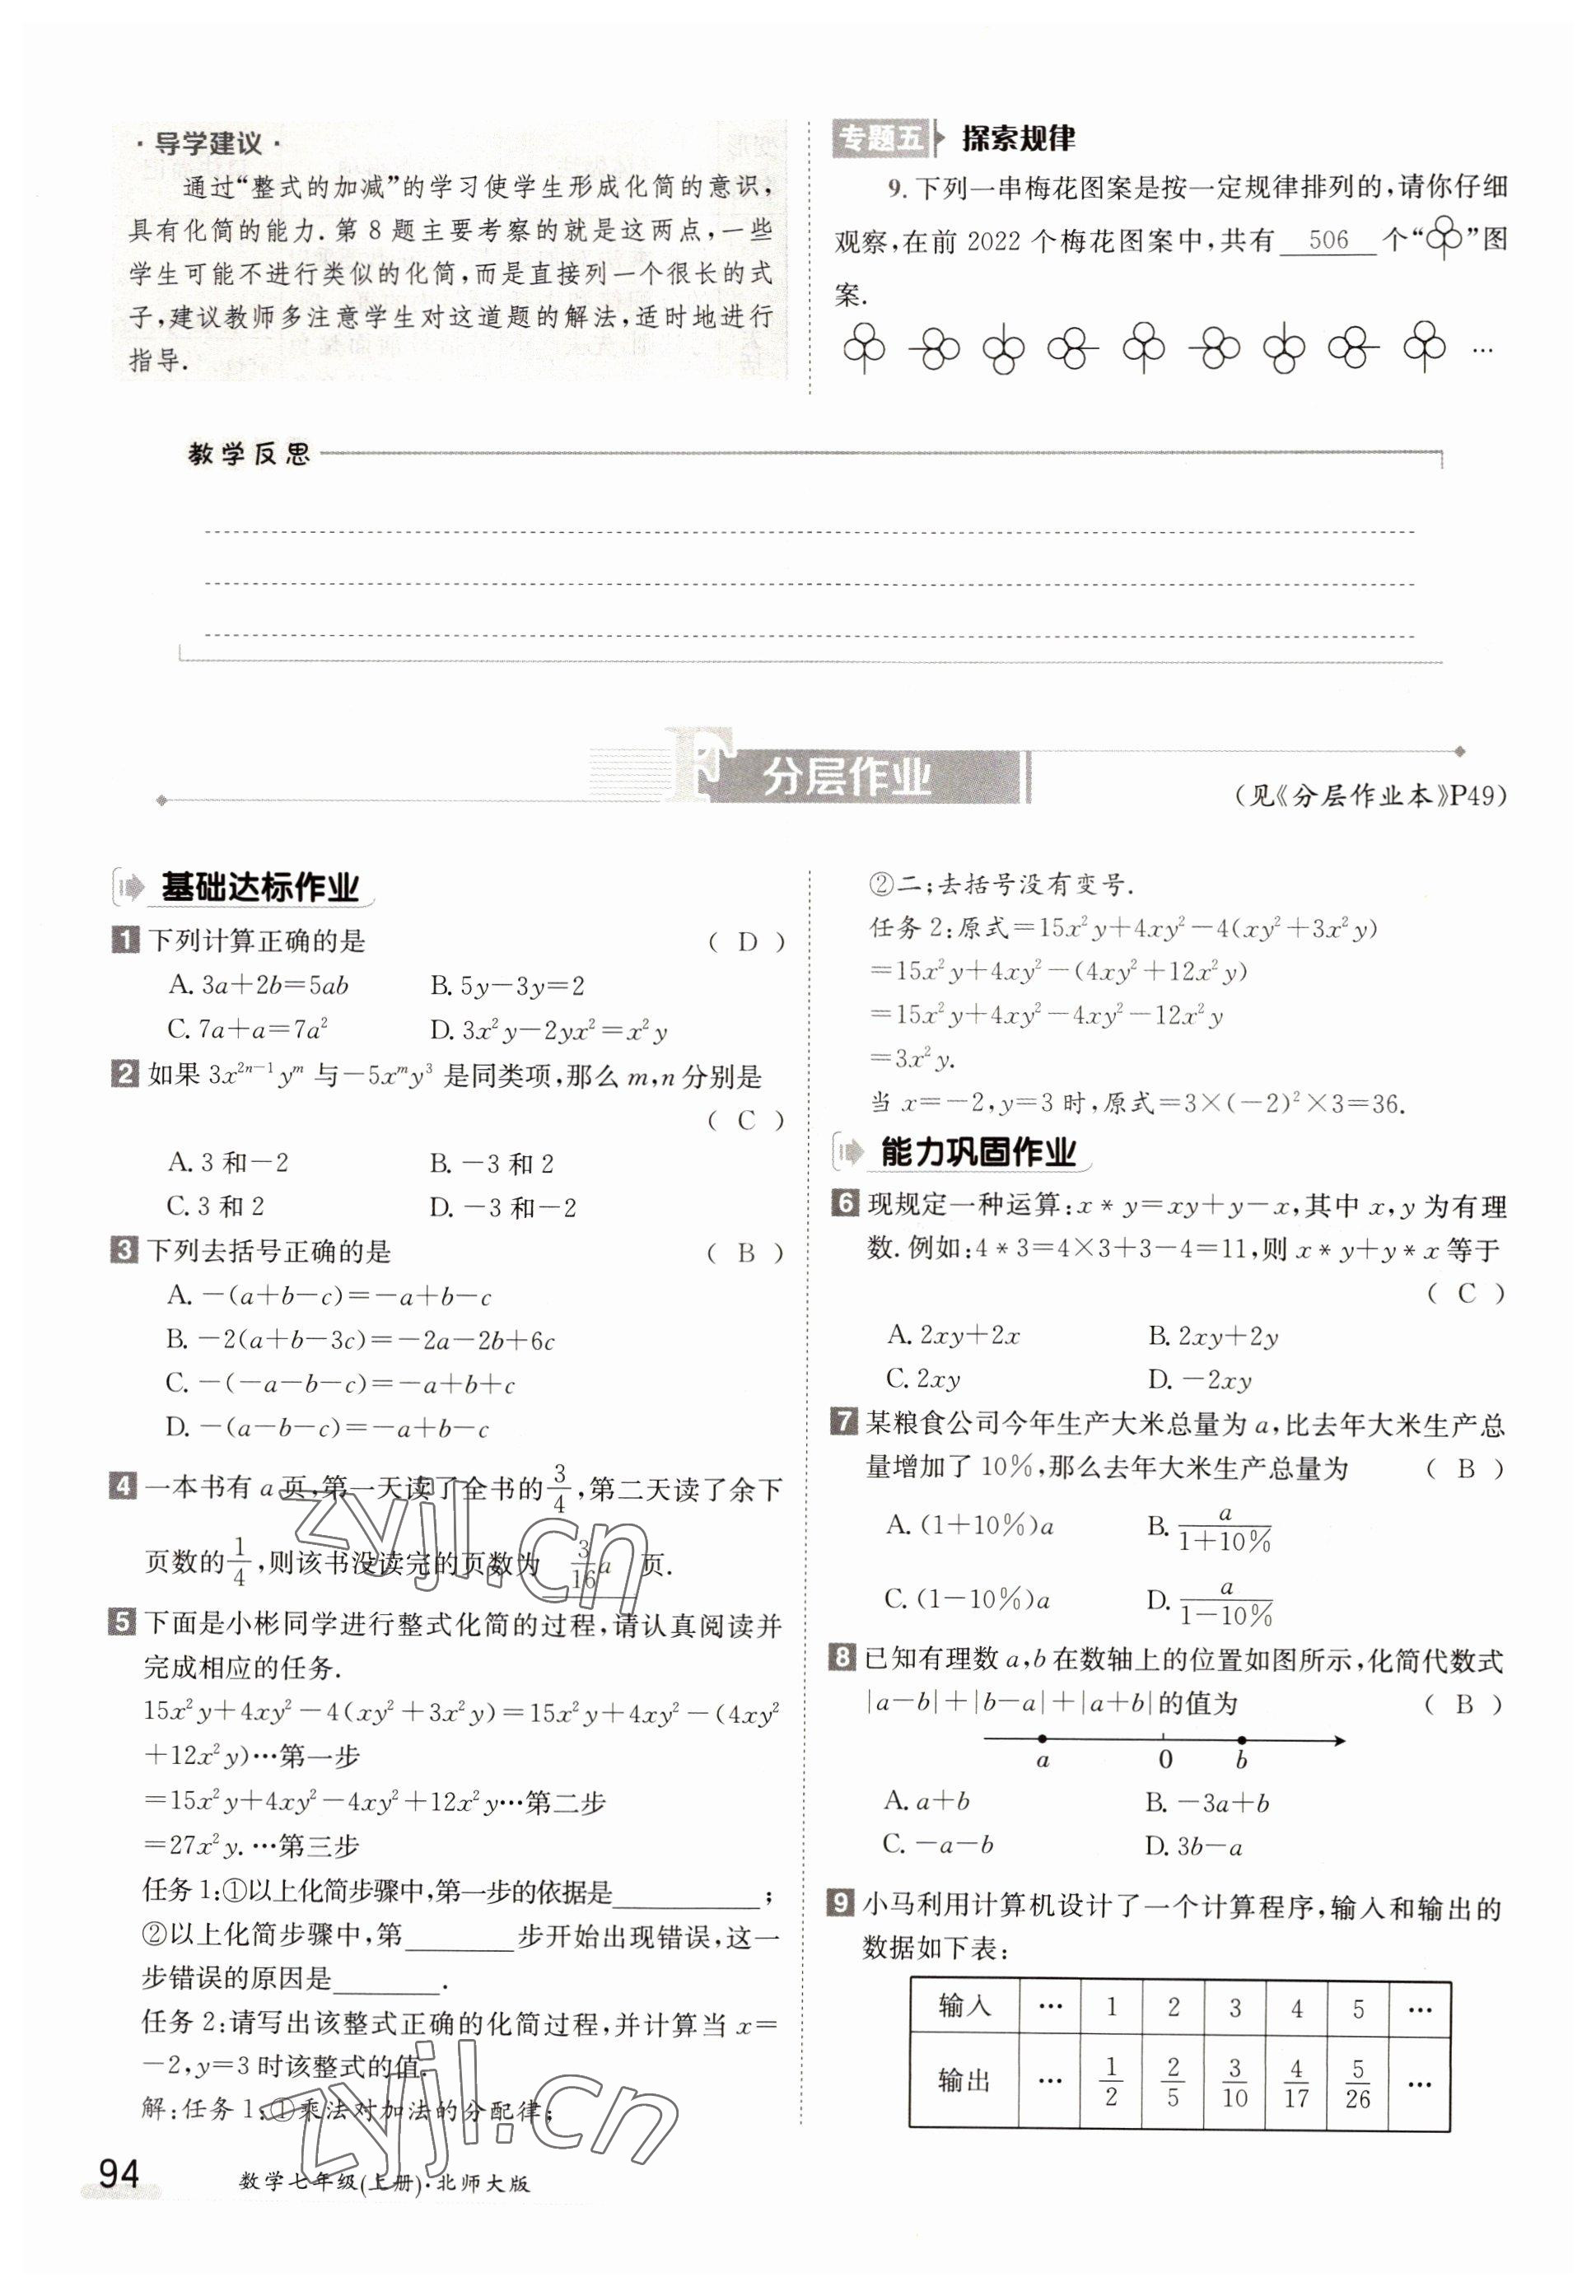 ·导学建议·
通过“整式的加减”的学习使学生形成化简的意识,
具有化简的能力.第8题主要考察的就是这两点,一些
学生可能不进行类似的化简,而是直接列一个很长的式
子,建议教师多注意学生对这道题的解法,适时地进行
指导.
专题五 探索规律
9.下列一串梅花图案是按一定规律排列的,请你仔细
观察,在前 2022 个梅花图案中,共有 506 个“”图
案.
…
教学反思
F 分层作业
(见《分层作业本》P49)
基础达标作业
1 下列计算正确的是 ( D )
A. 3a+2b=5ab B. 5y−3y=2
C. 7a+a=7a² D. 3x²y−2yx²=x²y
2 如果 3x²ⁿ⁻¹yᵐ 与−5xᵐy³ 是同类项,那么 m,n 分别是
( C )
A. 3 和−2 B. −3 和 2
C. 3 和 2 D. −3 和−2
3 下列去括号正确的是 ( B )
A. −(a+b−c)=−a+b−c
B. −2(a+b−3c)=−2a−2b+6c
C. −(−a−b−c)=−a+b+c
D. −(a−b−c)=−a+b−c
4 一本书有 a 页,第一天读了全书的 3/4 ,第二天读了余下
页数的 1/4 ,则该书没读完的页数为 3/16 a 页.
5 下面是小彬同学进行整式化简的过程,请认真阅读并
完成相应的任务.
15x²y+4xy²−4(xy²+3x²y)=15x²y+4xy²−(4xy²
+12x²y)…第一步
=15x²y+4xy²−4xy²+12x²y…第二步
=27x²y.…第三步
任务1:①以上化简步骤中,第一步的依据是________;
②以上化简步骤中,第______步开始出现错误,这一
步错误的原因是______.
任务2:请写出该整式正确的化简过程,并计算当 x=
−2,y=3 时该整式的值.
解:任务1:①乘法对加法的分配律;
②二;去括号没有变号.
任务2:原式=15x²y+4xy²−4(xy²+3x²y)
=15x²y+4xy²−(4xy²+12x²y)
=15x²y+4xy²−4xy²−12x²y
=3x²y.
当 x=−2,y=3 时,原式=3×(−2)²×3=36.
能力巩固作业
6 现规定一种运算:x*y=xy+y−x,其中 x,y 为有理
数.例如:4*3=4×3+3−4=11,则 x*y+y*x 等于
( C )
A. 2xy+2x B. 2xy+2y
C. 2xy D. −2xy
7 某粮食公司今年生产大米总量为 a,比去年大米生产总
量增加了 10%,那么去年大米生产总量为 ( B )
A. (1+10%)a B. a/(1+10%)
C. (1−10%)a D. a/(1−10%)
8 已知有理数 a,b 在数轴上的位置如图所示,化简代数式
|a−b|+|b−a|+|a+b|的值为 ( B )
a 0 b
A. a+b B. −3a+b
C. −a−b D. 3b−a
9 小马利用计算机设计了一个计算程序,输入和输出的
数据如下表:
输入 … 1 2 3 4 5 …
输出 … 1/2 2/5 3/10 4/17 5/26 …
94 数学七年级(上册)·北师大版
zyjl.cn
zyjl.cn